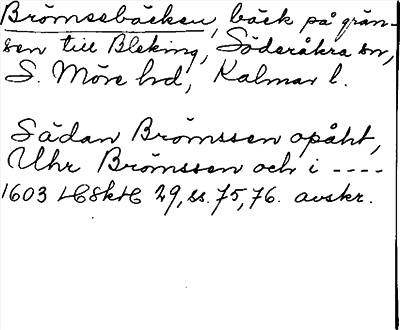 Brömsebäcken, bäck på grän-
sen till Bleking, Söderåkra sn,
S. Möre hd, Kalmar l.
Sádan Brömssen opåht,
Uhr Brömssen och i ----
1603 29, ss. 75, 76. avskr.